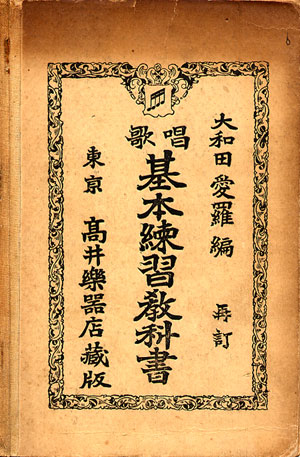 大和田愛羅編 再訂
唱歌
基本練習教科書
東京 髙井樂器店藏版